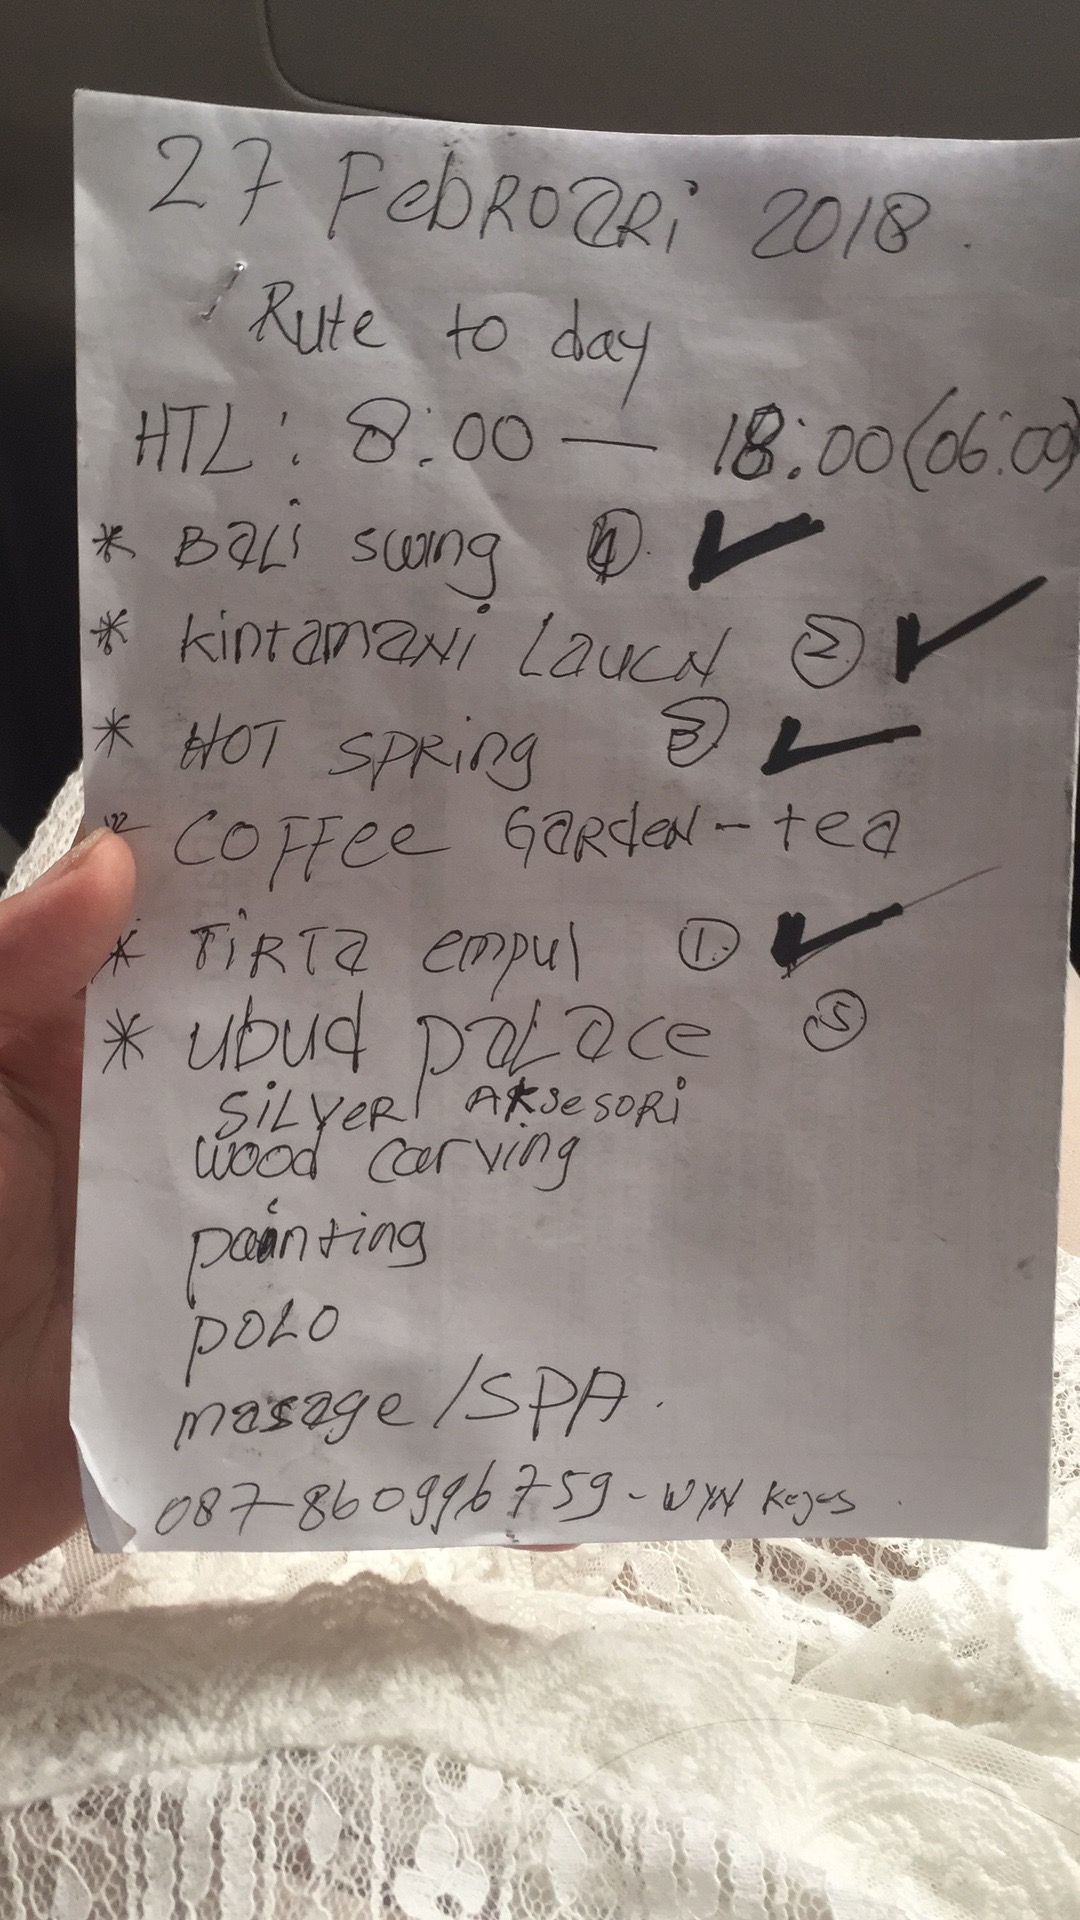 27 FebROaRi 2018.
Rute to day
HTL : 8:00 — 18:00 (06:00)
* Bali swing ④. ✓
* kintamani Laucn ② ✓
* HOT spring ③ ✓
* COFFee GaRdeN - tea
* TiRTa empul ①. ✓
* ubud paLace ⑤
SiLVeR AKSeSORi
wood carving
painting
POLO
masage/SPA.
087-860996759 - WYN